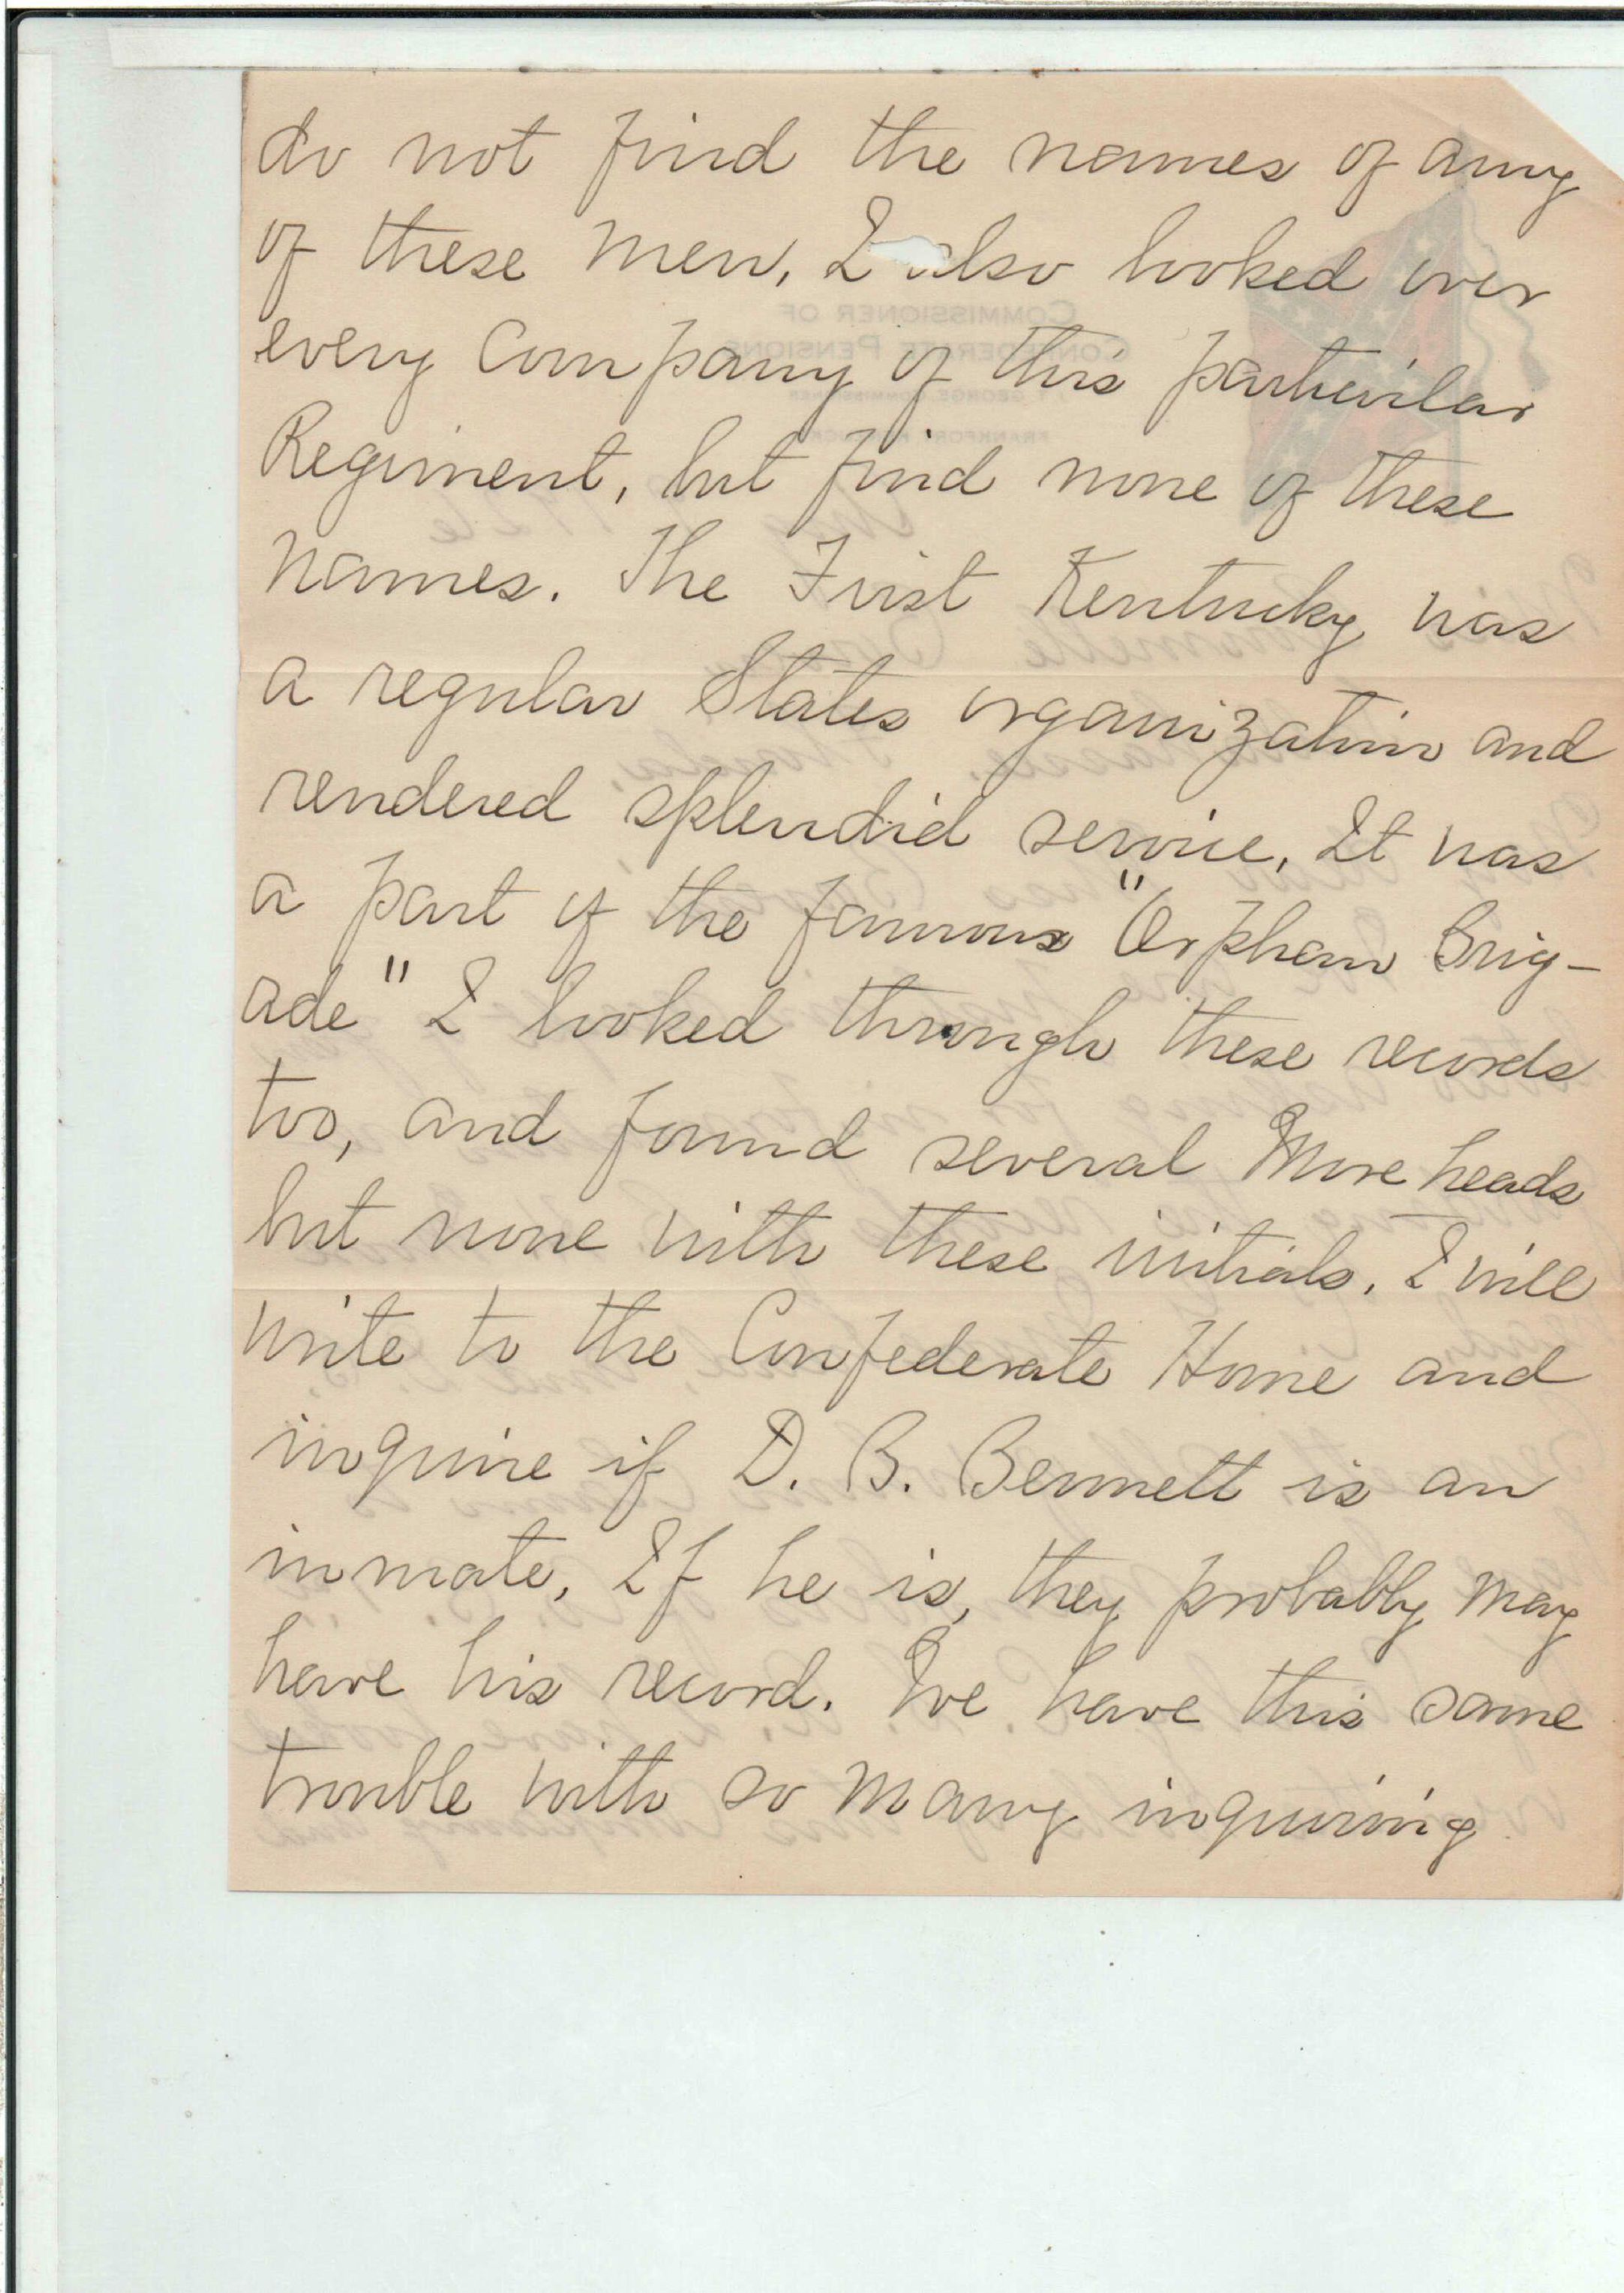 do not find the names of any
of these men, I also looked over
every Company of this particular
Regiment, but find none of these
names. The First Kentucky was
a regular States organization and
rendered splendid service, It was
a part of the famous "Orphan Brig-
ade" I looked through these records
too, and found several Moreheads
but none with these initials. I will
write to the Confederate Home and
inquire if D. B. Bennett is an
inmate, If he is, they probably may
have his record. We have this same
trouble with so many inquiring
COMMISSIONER OF
CONFEDERATE PENSIONS